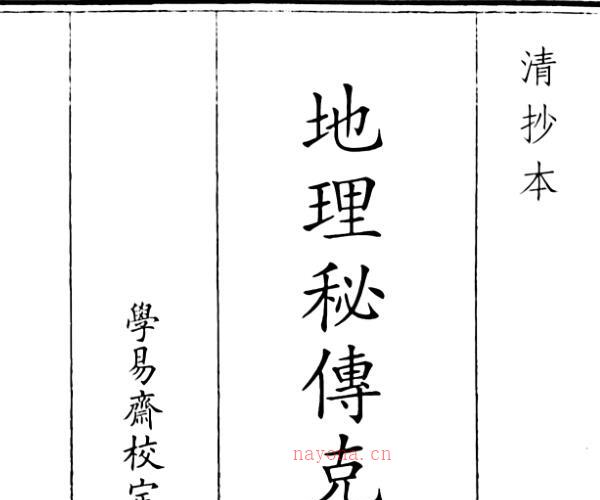 清抄本
地理秘傳克
學易齋校定
nayona.cn